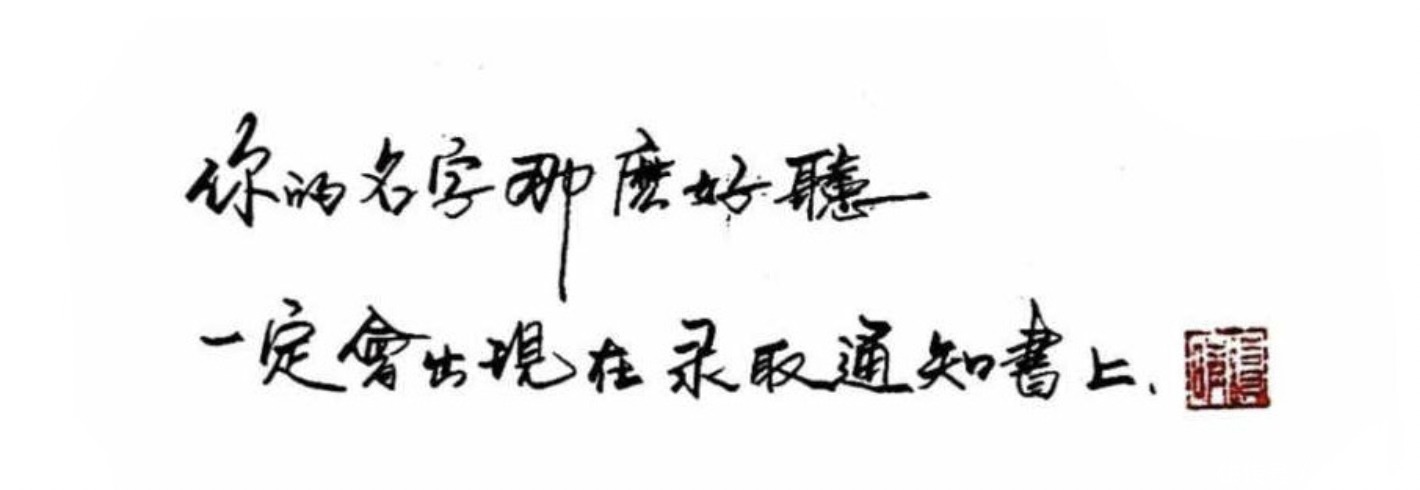 你的名字那麽好聽
一定會出現在录取通知書上.